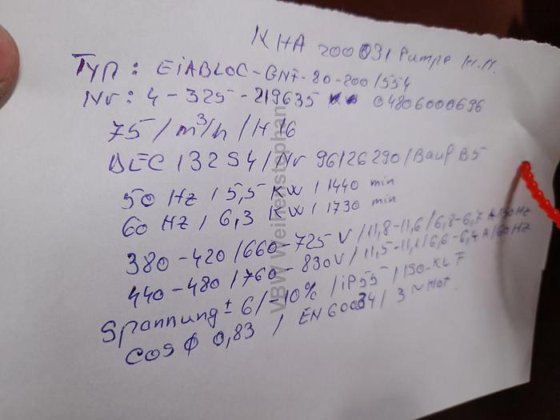 KHA 200031 Pumpe H.M.
Typ: EIABLOC-GNF-80-200/554
Nr: 4-325-219635 04806000696
75/m³/h/H 16
DEC 132 S4/Nr 96126290/Bauf B5
50 Hz/5,5 KW/1440 min
60 Hz/6,3 KW/1730 min
380-420/660-725 V/11,8-11,6/6,8-6,7 A/50Hz
440-480/760-830V/11,5-11,1/6,6-6,4 A/60Hz
Spannung ± 6/-10%/iP55/ISO-KL F
COS Φ 0,83 / EN60034/3~Mot
VBW Weihenstephan